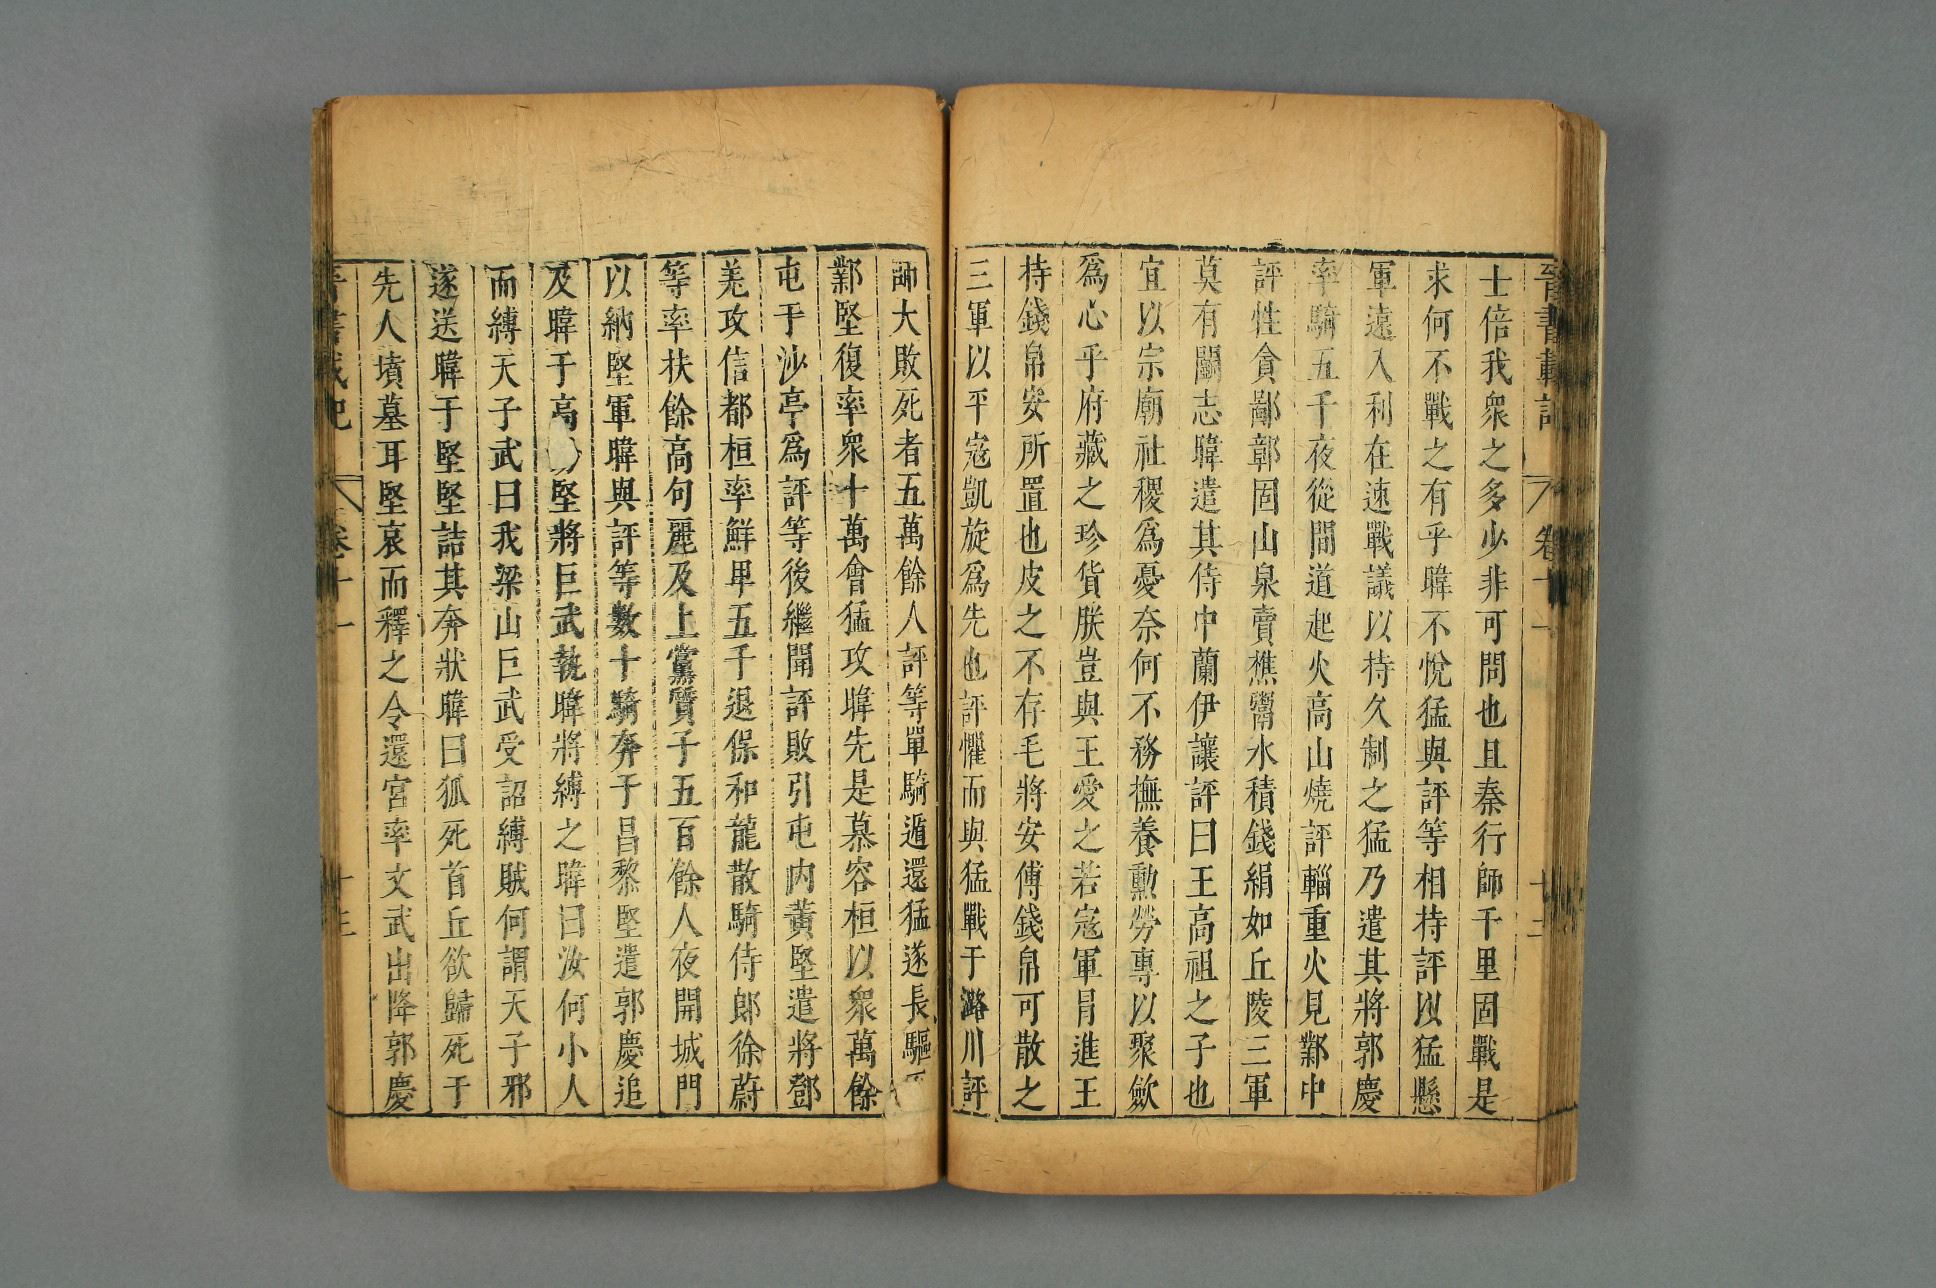 晉書載記
卷十一
十二
士倍我衆之多少非可問也且秦行師千里固戰是
求何不戰之有乎暐不悅猛與評等相持評以猛懸
軍遠入利在速戰議以持久制之猛乃遣其將郭慶
率騎五千夜從間道起火高山燒評輜重火見鄴中
評性貪鄙鄣固山泉賣樵鬻水積錢絹如丘陵三軍
莫有鬭志暐遣其侍中蘭伊讓評曰王高祖之子也
宜以宗廟社稷爲憂奈何不務撫養勳勞專以聚歛
爲心乎府藏之珍貨朕豈與王愛之若寇軍冒進王
持錢帛安所置也皮之不存毛將安傅錢帛可散之
三軍以平寇凱旋爲先也評懼而與猛戰于潞川評
師大敗死者五萬餘人評等單騎遁還猛遂長驅
鄴堅復率衆十萬會猛攻暐先是慕容桓以衆萬餘
屯于沙亭爲評等後繼聞評敗引屯内黃堅遣將鄧
羌攻信都桓率鮮卑五千退保和龍散騎侍郎徐蔚
等率扶餘高句麗及上黨質子五百餘人夜開城門
以納堅軍暐與評等數十騎奔于昌黎堅遣郭慶追
及暐于高堅將巨武執暐將縛之暐曰汝何小人
而縛天子武曰我梁山巨武受詔縛賊何謂天子邪
遂送暐于堅堅詰其奔狀暐曰狐死首丘欲歸死于
先人墳墓耳堅哀而釋之令還宮率文武出降郭慶
晉書載記
卷十一